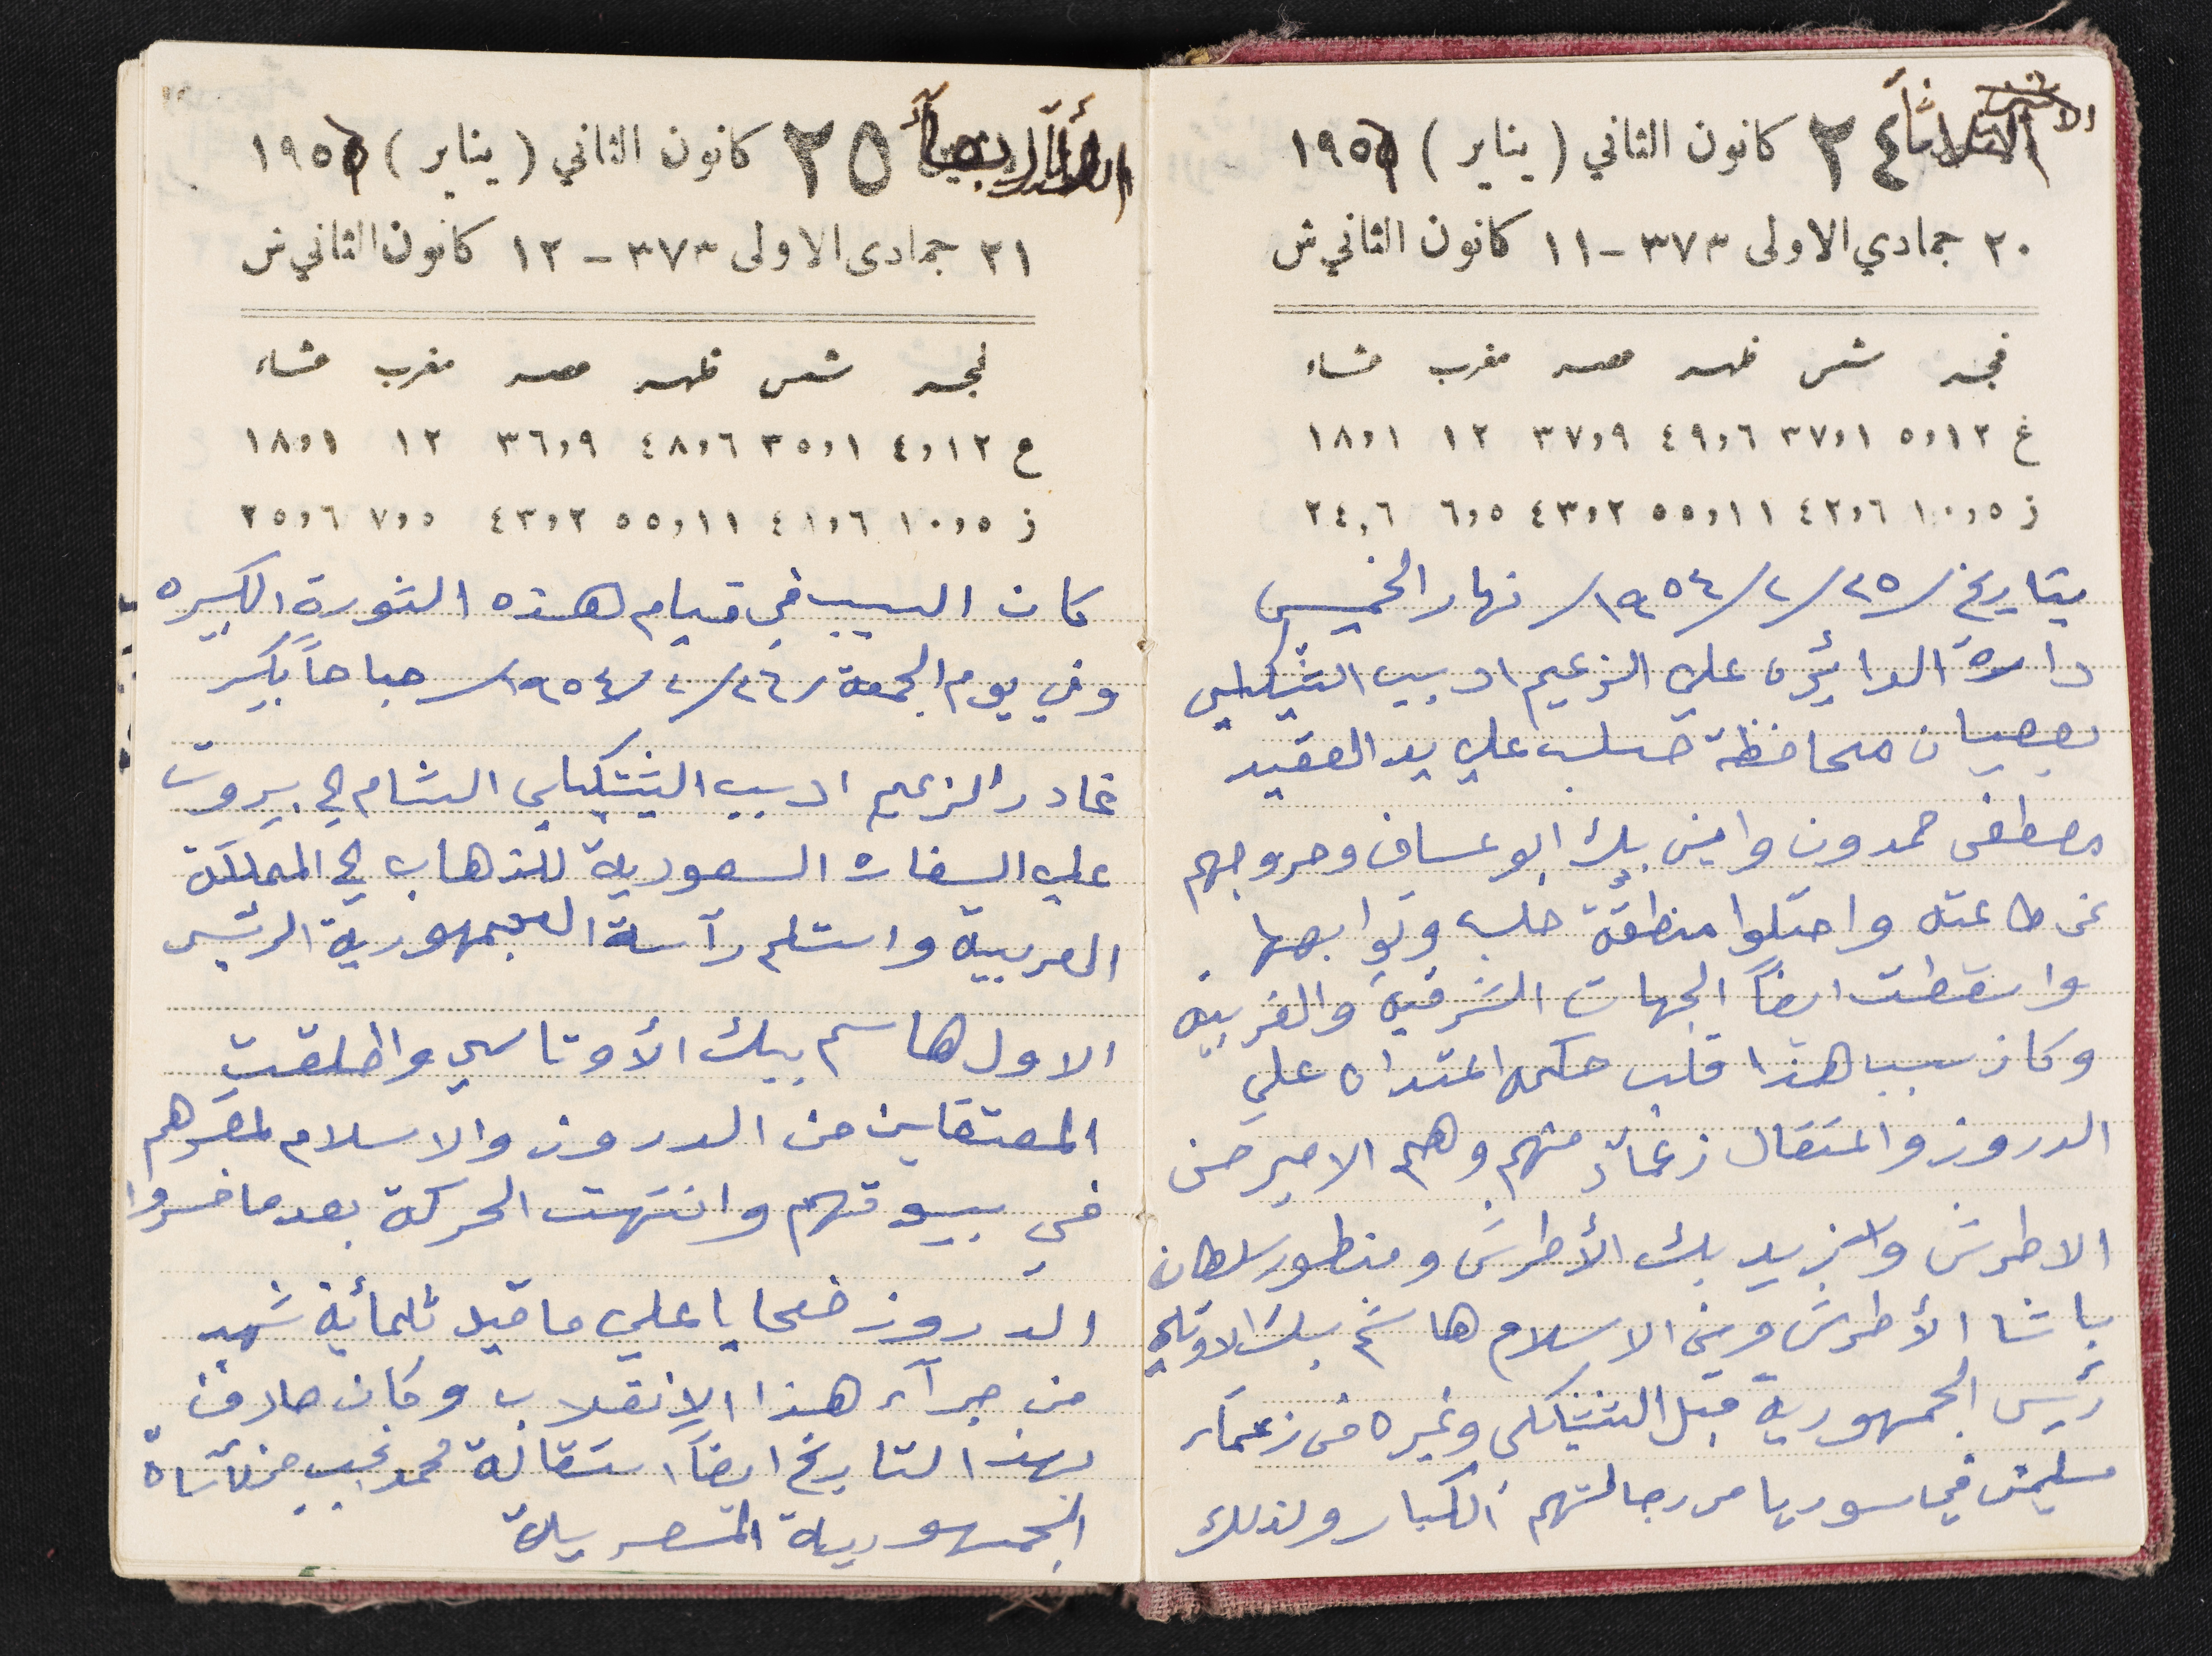 الثلاثاء ٢٤ كانون الثاني (يناير) ١٩٥٦
٢٠ جمادي الاولى ٣٧٣ - ١١ كانون الثاني ش
فجر شمس ظهر عصر مغرب عشاء
غ ٥,١٢ ٣٧,١ ٤٩,٦ ٣٧,٩ ١٢ ١٨,١
ز ١٠,٥ ٤٢,٦ ٥٥,١١ ٤٣,٢ ٦,٥ ٢٤,٦
بتاريخ /٢٥/٢/١٩٥٤/ نهار الخميس
دارة الدائره علي الزعيم اديب الشيكلي
بعصيان محافظة حلب علي يد العقيد
مصطفى حمدون وامين بك ابو عساف وخروجهم
عن طاعته واحتلوا منطقة حلب وتوابعها
واسقطت ايضاً الجهات الشرقية والغربيه
وكان سبب هذا قلب حكمه اعتداه علي
الدروز واعتقال زعمآء منهم وهم الامير حسن
الاطرش ويزيد بك الأطرش ومنطور سلطان
باشا الأطرش ومن الاسلام هاشم بك الاوتاسي
رئيس الجمهورية قبل الشيشكلي وغيره من زعمآء
مسلمين في سوريا من رجالتهم الكبار ولذلك
٢٥ كانون الثاني (يناير) ١٩٥٦
٢١ جمادى الاولى ٣٧٣ - ١٢ كانون الثاني ش
فجر شمس ظهر عصر مغرب عشاء
ع ٤,١٢ ٣٥,١ ٤٨,٦ ٣٦,٩ ١٢ ١٨,١
ز ١٠,٥ ٤١,٦ ٥٥,١١ ٤٣,٢ ٧,٥ ٢٥,٦
كان السبب في قيام هذه الثورة الكبيره
وفي يوم الجمعة /٢٦/٢/١٩٥٤/ صباحاً بكير
غادر الزعيم اديب الشيشكلي الشام الي بيروت
علي السفاره السعودية للذهاب الي المملكة
العربية واستلم رآسة الجمهورية الرئيس
الاول هاشم بيك الأوتاسي واطلقت
المعتقلين من الدروز والاسلام لمقرهم
في بيوتهم وانتهت الحركة بعد ما خسروا
الدروز ضحايا علي ما قيل ثلمائة شهيد
من جرآء هذا الإنقلاب وكان صادف
بهذ التاريخ ايضاً استقالة محمد نجيب من رآسة
الجمهورية المصرية